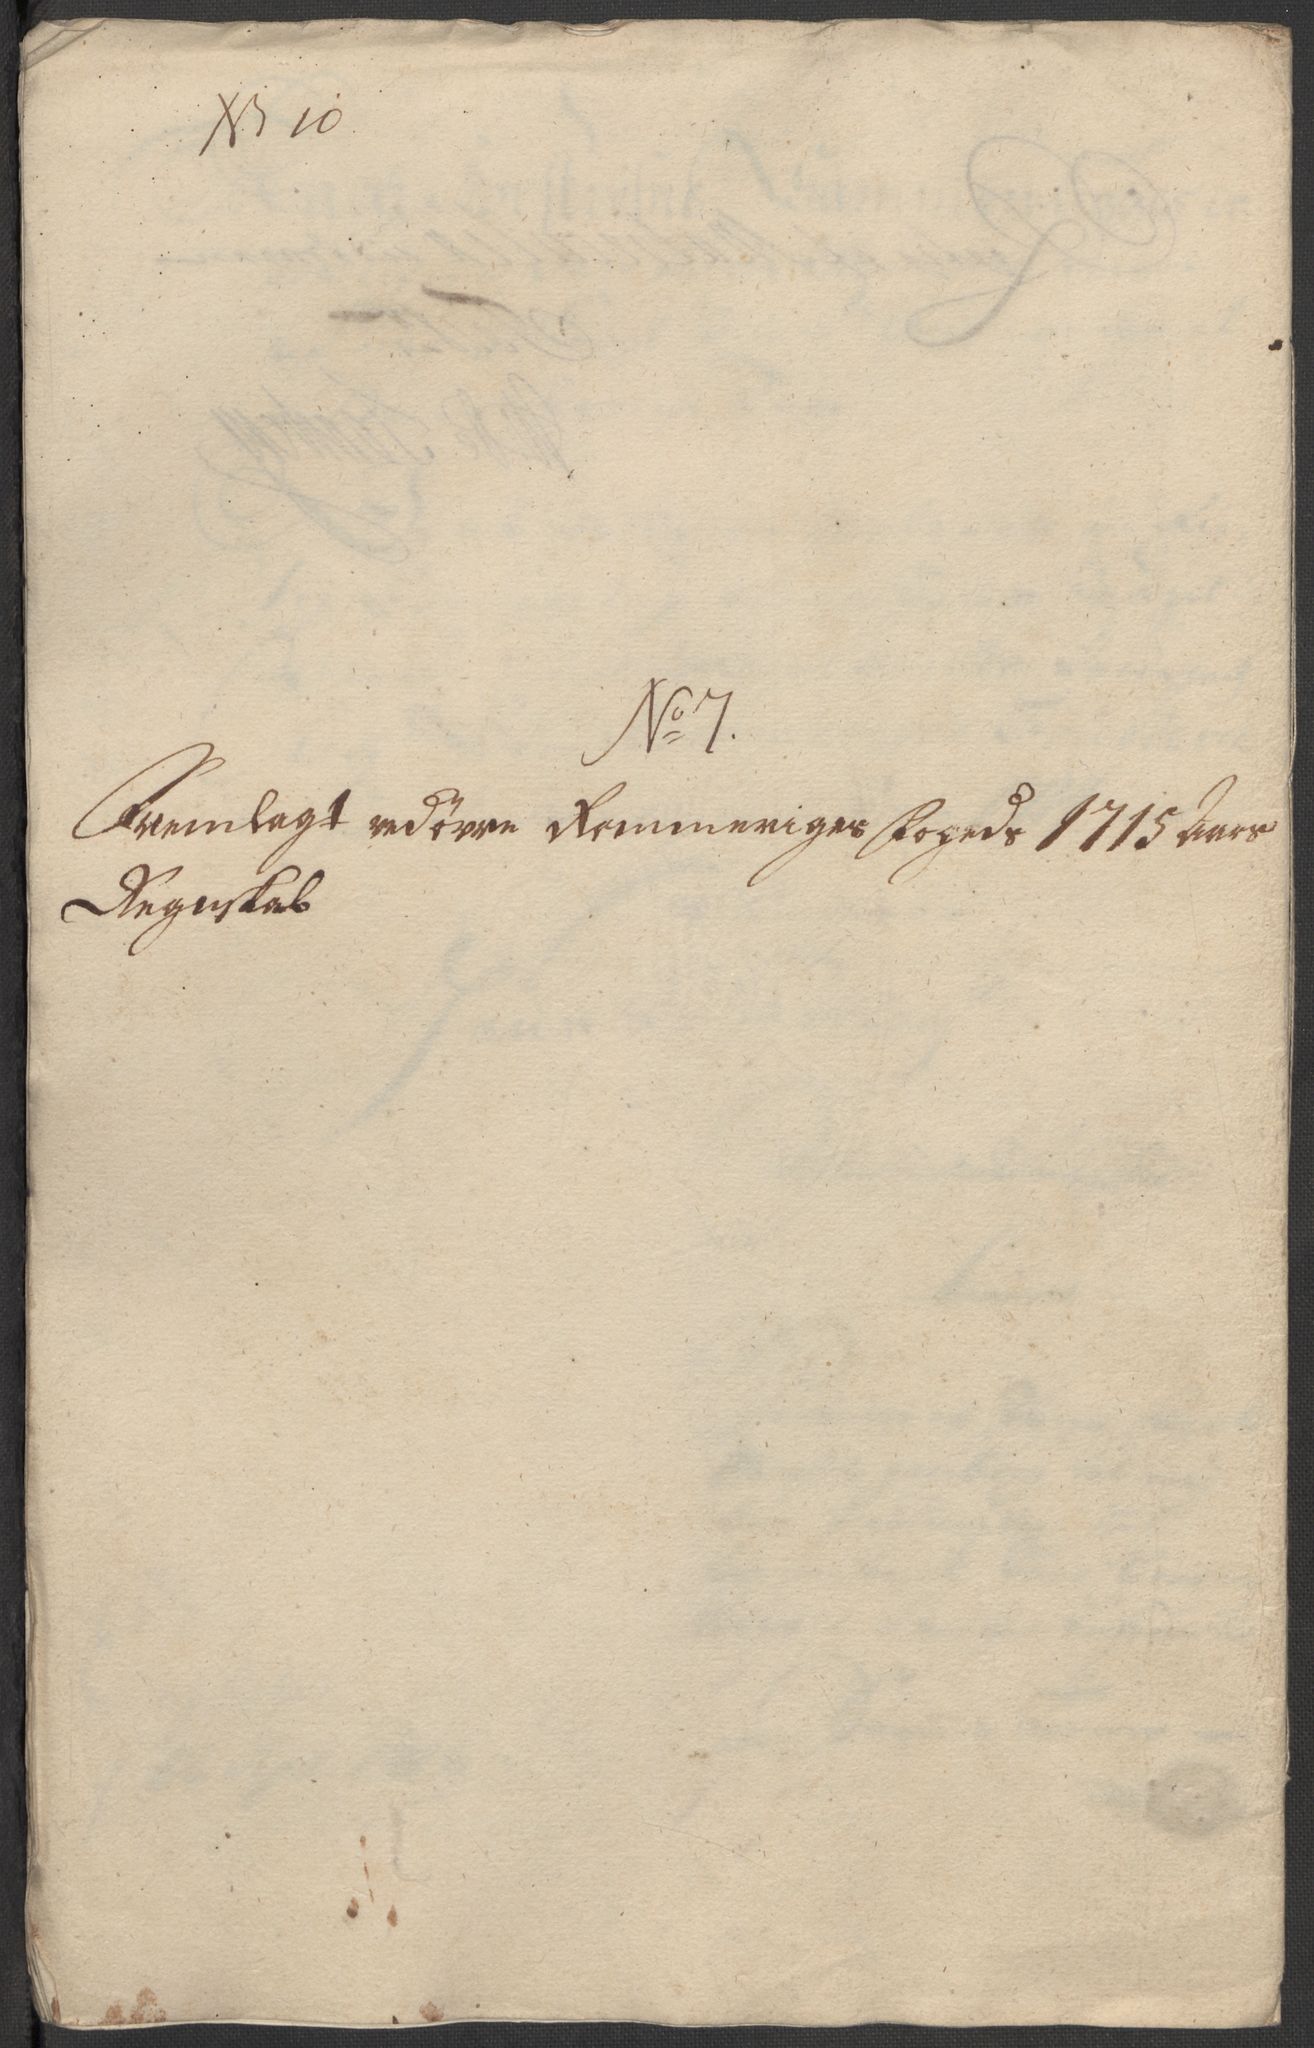 NB 10
No 7.
Fremlagt ved Øvre Rommeriges Fogeds 1715 Aars
Regnskab